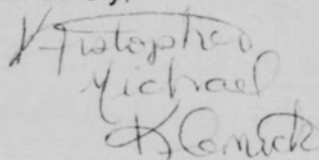 Kristopher
Michael
Klemick